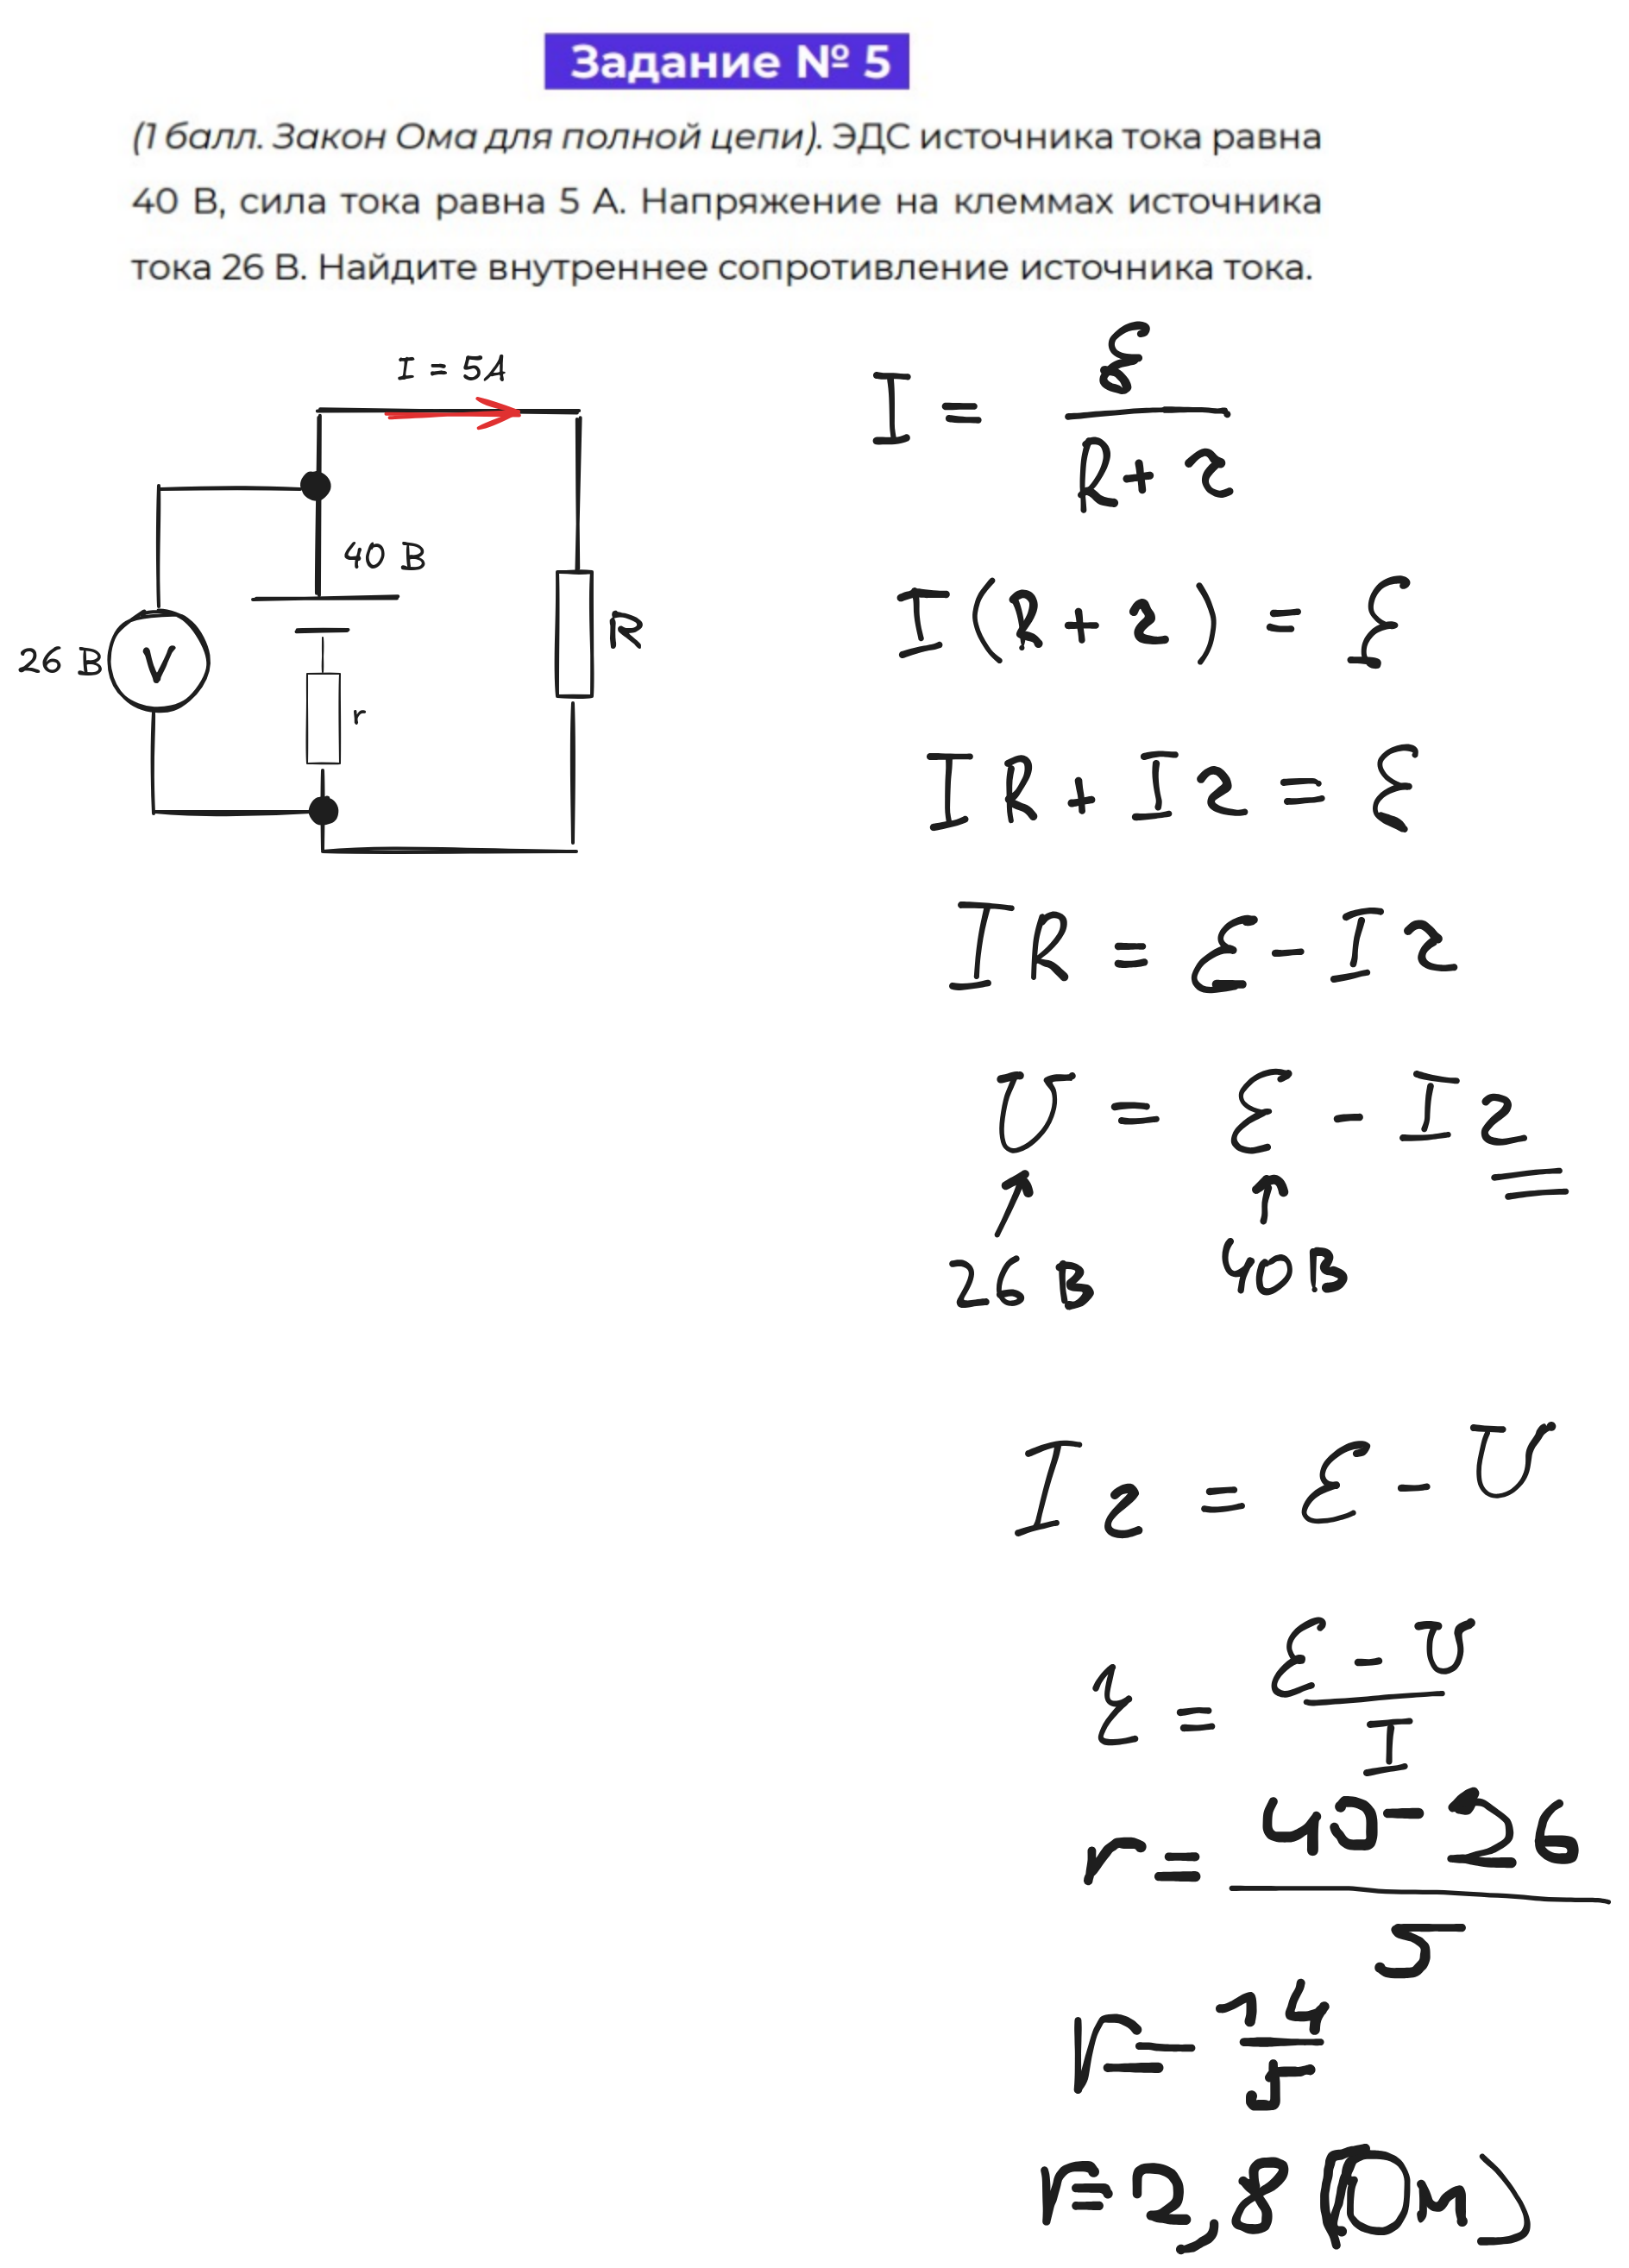 Задание № 5
(1 балл. Закон Ома для полной цепи). ЭДС источника тока равна
40 В, сила тока равна 5 А. Напряжение на клеммах источника
тока 26 В. Найдите внутреннее сопротивление источника тока.
I = 5А
40 В
26 В
V
r
R
I = ℰ / (R + r)
I (R + r) = ℰ
I R + I r = ℰ
I R = ℰ - I r
U = ℰ - I r
26 В 40 В
I r = ℰ - U
r = (ℰ - U) / I
r = (40 - 26) / 5
r = 14 / 5
r = 2,8 (Ом)